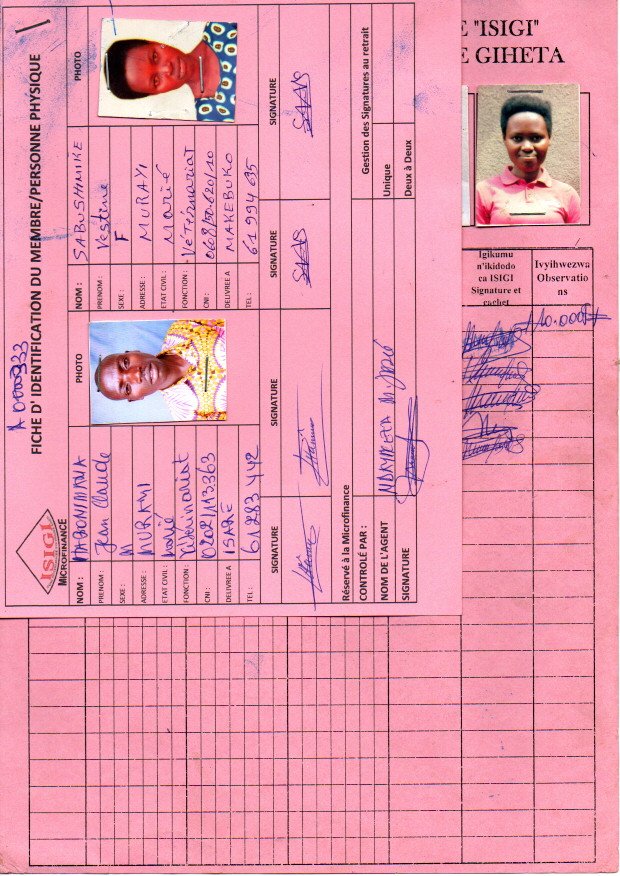 A 000333
FICHE D' IDENTIFICATION DU MEMBRE/PERSONNE PHYSIQUE
ISIGI
MICROFINANCE
PHOTO
NOM :
PRENOM : Jean Claude
SEXE : M
ADRESSE : MURAYI
ETAT CIVIL : Marié
FONCTION : Vétérinariat
CNI : 0202/113.363
DELIVREE A ISARE
TEL : 61 283 442
SIGNATURE
SIGNATURE
PHOTO
NOM : SABUSHIMIKE
PRENOM : Vestine
SEXE : F
ADRESSE : MURAYI
ETAT CIVIL : Marié
FONCTION : Vétérinariat
CNI :
DELIVREE A MAKEBUKO
TEL : 61 994 695
SIGNATURE
SIGNATURE
Réservé à la Microfinance
CONTRÔLE PAR :
NOM DE L'AGENT
SIGNATURE
Gestion des Signatures au retrait
Unique
Deux à Deux
E "ISIGI"
E GIHETA
Igikumu
n'ikidodo
ca ISIGI
Signature et
cachet
Ivyihwezwa
Observatio
ns